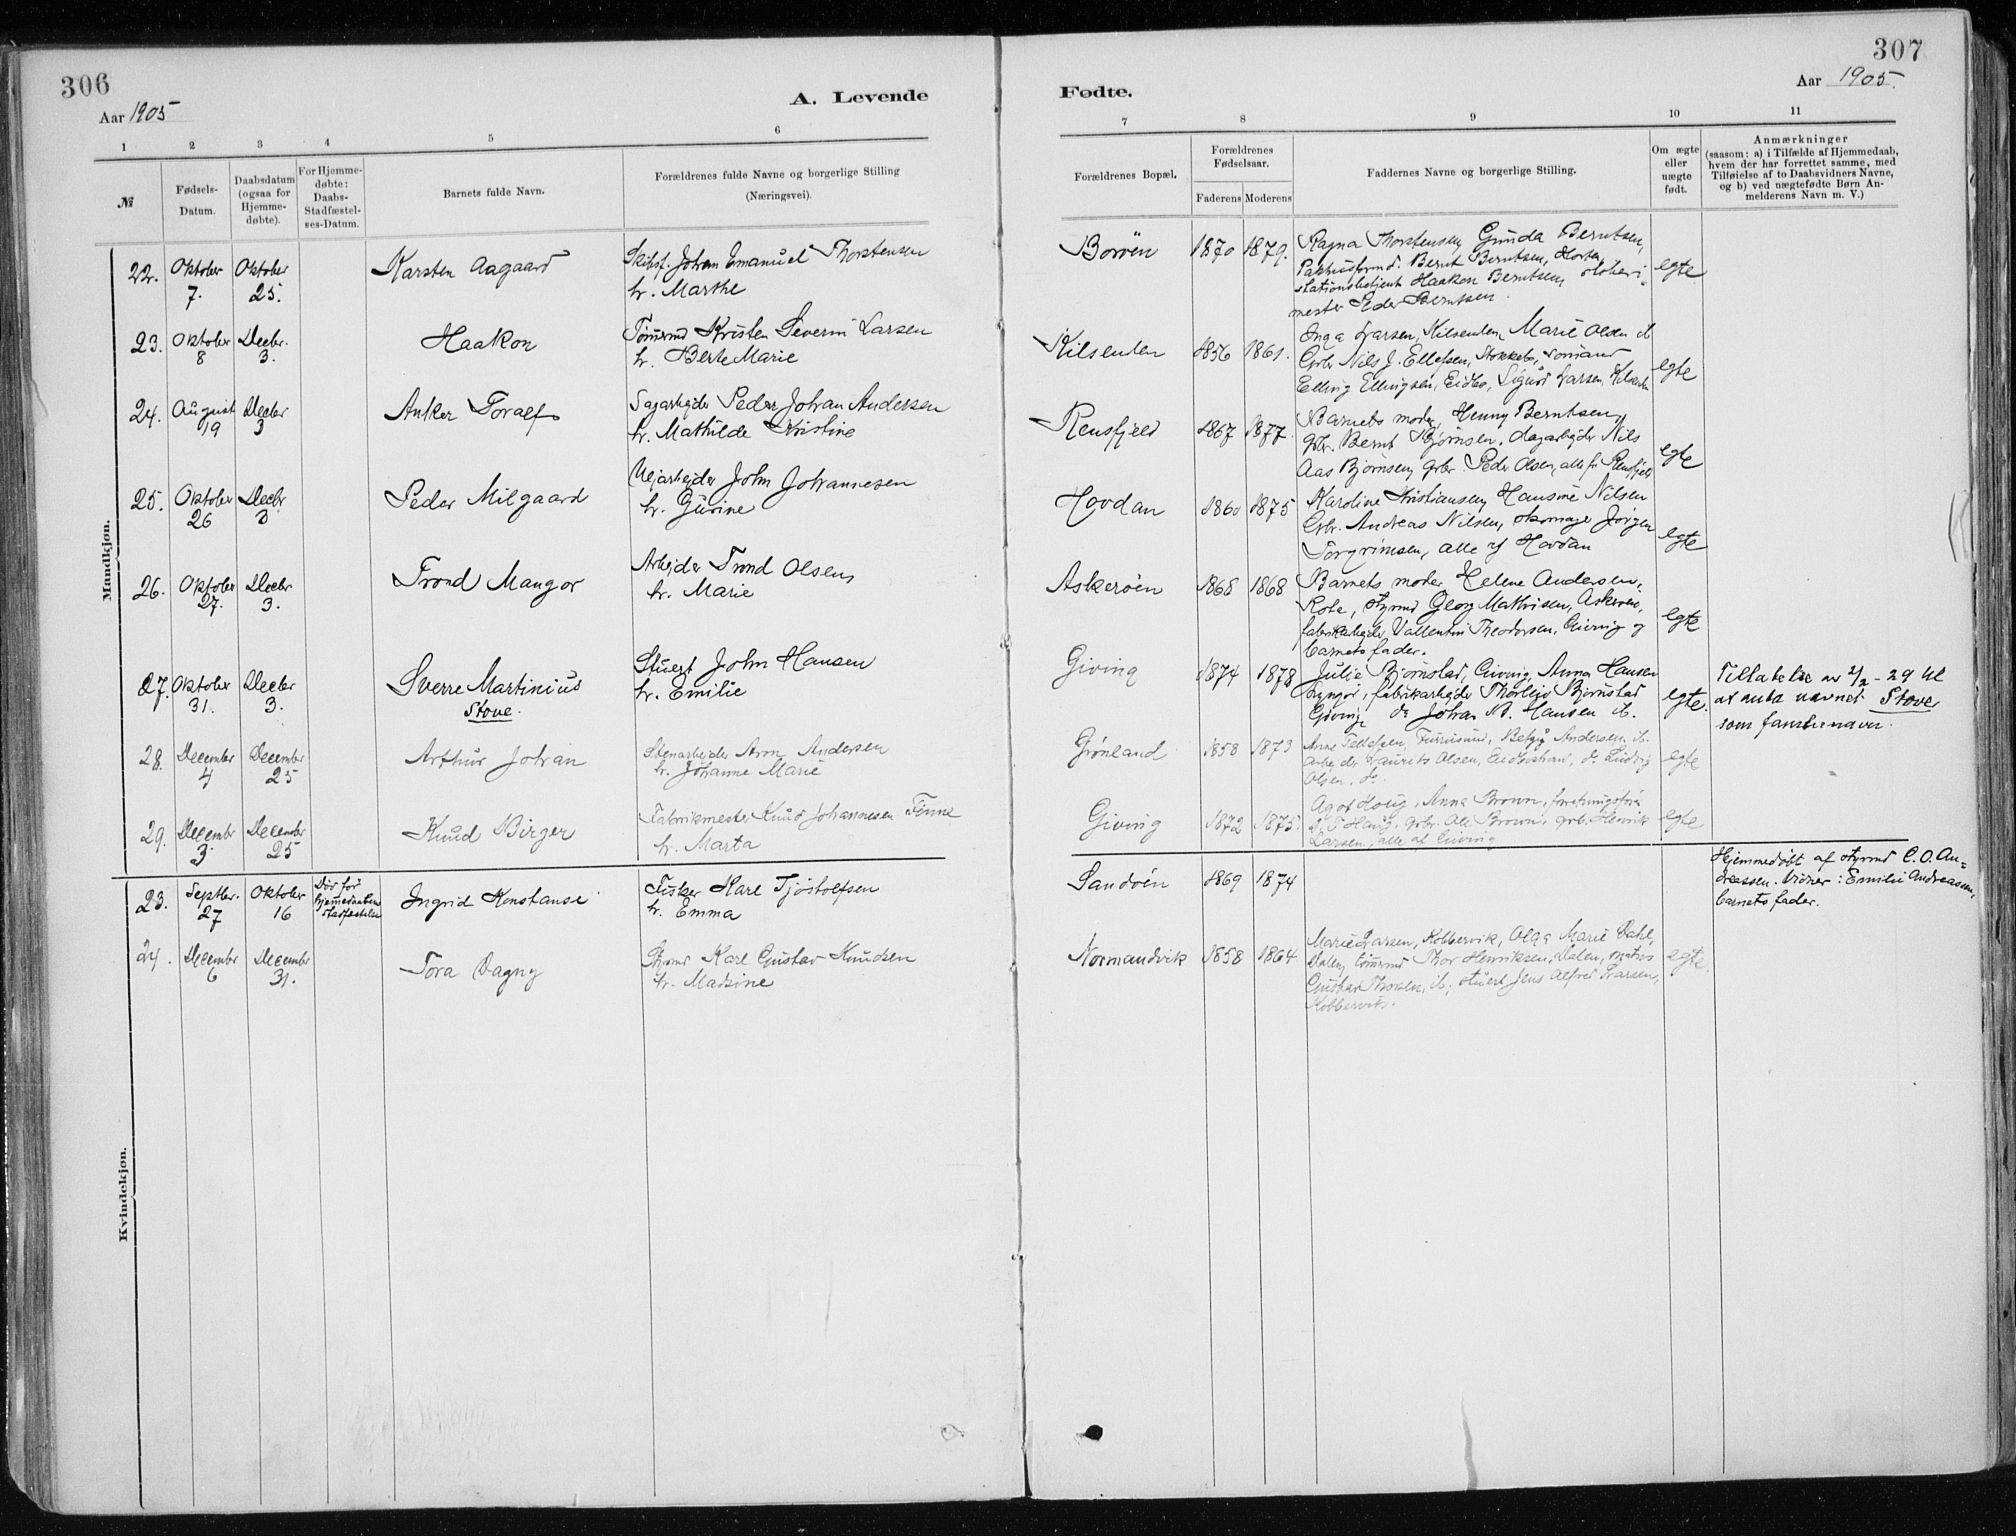 306
Aar 1905
A. Levende
1 2 3 4 5 6
№
Fødsels-
Datum.
Daabsdatum
(ogsaa for
Hjemme-
døbte).
For Hjemme-
døbte:
Daabs-
Stadfæstel-
ses-Datum.
Barnets fulde Navn.
Forældrenes fulde Navne og borgerlige Stilling
(Næringsvei).
Mandkjøn.
22. Oktober Oktober Karsten Aagaard Johan Emanuel Thorstensen
7. 25. h. Marthe
23. Oktober Decbr. Haakon Tømmrmd Kristen Severin Larsen
8 3. h. Berte Marie
24. August Decbr Anker Toralf Sagarbejder Peder Johan Andersen
19 3 h. Mathilde Kristine
25. Oktober Decbr Peder Milgaard Vejarbejder John Johannesen
26 3 h. Gurine
26. Oktober Decbr Trond Mangor Arbejder Trond Olsen
27. 3. h. Marie
27. Oktober Decbr Sverre Martinius Stuert John Hansen
31. 3. Stove. h. Emilie
28. December December Arthur Johan Stenarbejder Aron Andersen
4 25 h. Johanne Marie
29. Decembr December Knud Birger Fabrikmester Knud Johannesen Finne
3. 25 h. Marta
Kvindekjøn.
23. Septbr. Oktober Død før Ingrid Konstanse Fisker Karl Tjøstolfsen
27 16 hjemmedaabens stadfestelse h. Emma
24. Decembr December Tora Dagny Styrmd Karl Gustav Knudsen
6 31. h. Madsine
307
Aar 1905.
Fødte.
7 8 9 10 11
Forældrenes Bopæl.
Forældrenes
Fødselsaar.
Faderens Moderens
Faddernes Navne og borgerlige Stilling.
Om ægte
eller
uægte
født.
Anmærkninger
(saasom: a) i Tilfælde af Hjemmedaab,
hvem der har forrettet samme, med
Tilføielse af to Daabsvidners Navne,
og b) ved uægtefødte Børn An-
melderens Navn m. V.)
Borøen 1870 1879. Ragna Thorstensen, Gunda Berntsen,
Pakhusformd. Bernt Berntsen, Horten, egte
stationsbetjent Haakon Berntsen,
mester Peder Berntsen.
Kilsenden 1856 1861. Inga Larsen, Kilsenden, Marie Olsen
Grbr Nils J. Ellefsen,
Elling Ellingsen, Eidbo, Sigurd Larsen, Kilsenden egte
Rensfjeld 1867 1877. Barnets moder, Henny Berntsen,
grbr. Bernt Bjørnsen, dagarbejder Nils
Aas Bjørnsen, grbr. Peder Olsen, alle fr Rensfjeld egte
Hovdan 1860 1875 Karoline Kristiansen, Hansine Nilsen
Grbr. Andreas Nilsen, skomager Jørgen
Torgrimsen, alle af Hovdan egte
Askerøen 1868 1868 Barnets moder, Helene Andersen,
Rota, styrmd Georg Mathisen, Askerøen,
fabrikarbejder Vallentin Theodorsen, Giving og egte
barnets fader.
Giving 1874 1878 Julie Bjørnstad, Giving, Anna Hansen Tilladelse av 2/2 - 29 til
Lyngør, fabrikarbejder Thorleiv Bjørnstad egte. at anta navnet Stove
Giving, do Johan M. Hansen som familienavn.
Grønland 1858 1873 Anne Tellefsen, Furusund, Betzy Andersen,
Laurits Olsen, do Ludvig egte
Olsen, do.
Giving 1872 1875. Agot Houg, Anna Brown,
Houg, grbr. Ole Brown, grb. Henrik egte
Larsen, alle af Giving
Sandøen 1869 1874 Hjemmedøbt af styrmd C. O. An-
dreassen. Vidner: Emilie Andreassen,
barnets fader.
Normandvik 1858 1864 Marie Larsen, Kobbervik, Olga Marie Dahl,
Dalen, tømmrmd Thor Henriksen, Dalen, matros egte.
Gustav Thorsen, stuert Jens Alfred Larsen,
Kobbervik.